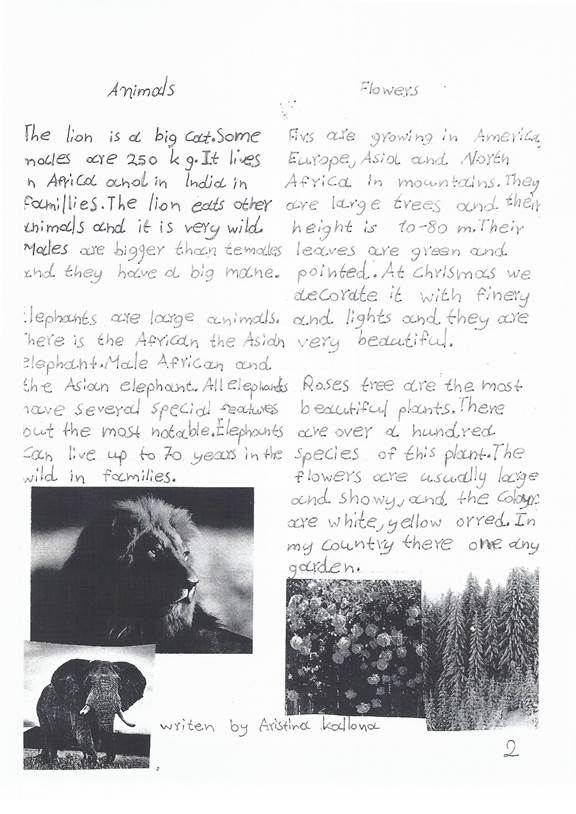 Animals
The lion is a big cat. Some
males are 250 kg. It lives
n Africa and in India in
famillies. The lion eats other
animals and it is very wild.
Males are bigger than females
and they have a big mane.
Elephants are large animals.
There is the African the Asian
elephant. Male African and
the Asian elephant. All elephants
have several special features
out the most notable. Elephants
can live up to 70 years in the
wild in families.
Flowers
Firs are growing in America,
Europe, Asia and North
Africa in mountains. They
are large trees and their
height is 10-80 m. Their
leaves are green and
pointed. At Chrismas we
decorate it with finery
and lights and they are
very beautiful.
Roses tree are the most
beautiful plants. There
are over a hundred
species of this plant. The
flowers are usually large
and showy, and the colour
are white, yellow orred. In
my country there one any
garden.
writen by Aristina Kallona
2